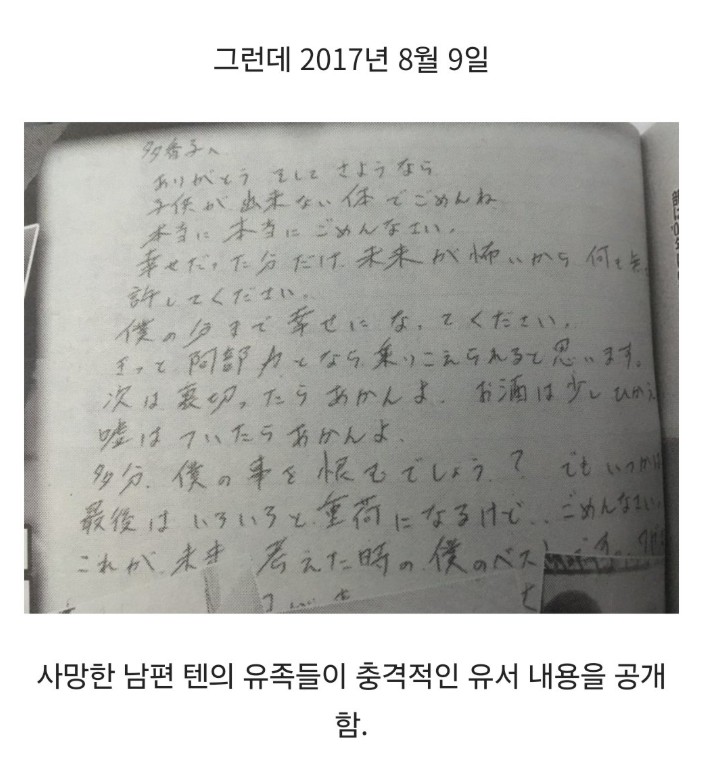 그런데 2017년 8월 9일
多香子へ
ありがとう そして さようなら
子供が 出来ない 体で ごめんね
本当に 本当に ごめんなさい。
幸せだった分だけ 未来が 怖いから 何も
許してください。
僕の分まで 幸せに なってください。
きっと 阿部 力となら 乗りこえられると 思います。
次は 裏切ったらあかんよ. お酒は少しひかえ
嘘は ついたらあかんよ.
多分. 僕の事を 恨むでしょう? でも いつかは
最後は いろいろと 重荷になるけど.. ごめんなさい。
これが. 未来 考えた時の 僕のベスト です
사망한 남편 텐의 유족들이 충격적인 유서 내용을 공개
함.